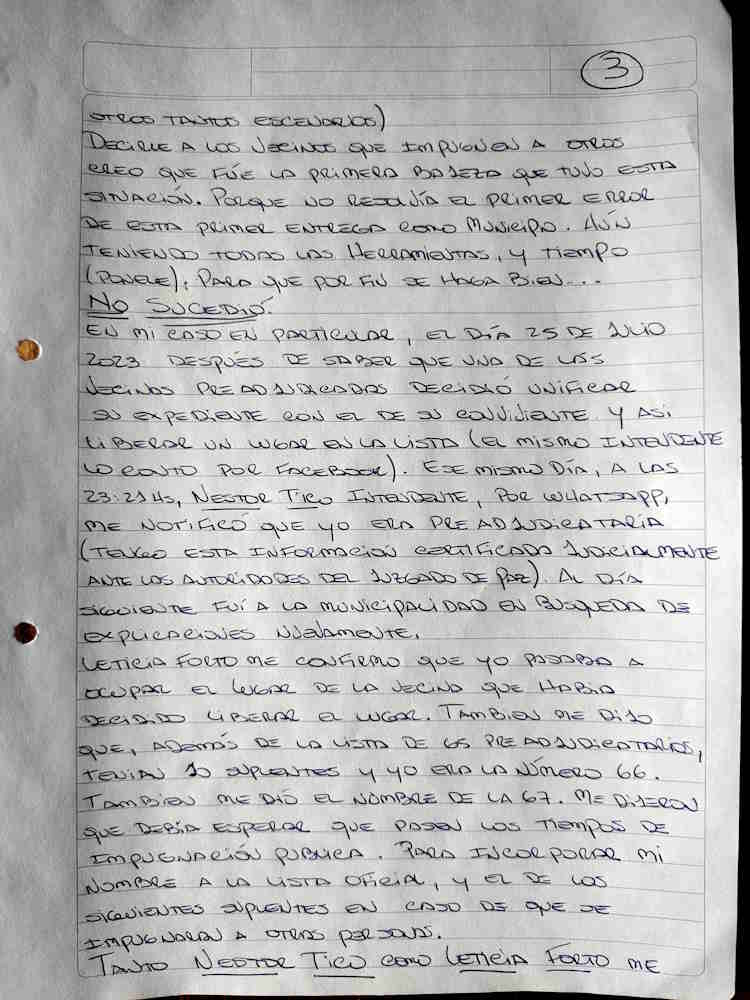 3
OTROS TANTOS ESCENARIOS)
DECIRLE A LOS VECINOS QUE IMPUGNEN A OTROS
CREO QUE FUÉ LA PRIMERA BAJEZA QUE TUVO ESTA
SITUACIÓN. PORQUE NO RESOLVÍA EL PRIMER ERROR
DE ESTA PRIMER ENTREGA COMO MUNICIPIO. AÚN
TENIENDO TODAS LAS HERRAMIENTAS, Y TIEMPO
(PONELE), PARA QUE POR FIN SE HAGA BIEN...
NO SUCEDIÓ.
EN MI CASO EN PARTICULAR, EL DÍA 25 DE JULIO
2023 DESPUÉS DE SABER QUE UNA DE LAS
VECINAS PREADJUDICADAS DECIDIÓ UNIFICAR
SU EXPEDIENTE CON EL DE SU CONVIVIENTE Y ASI
LIBERAR UN LUGAR EN LA LISTA (EL MISMO INTENDENTE
LO CONTO POR FACEBOOK). ESE MISMO DÍA, A LAS
23:21HS, NESTOR TICO INTENDENTE, POR WHATSAPP,
ME NOTIFICÓ QUE YO ERA PREADJUDICATARÍA
(TENGO ESTA INFORMACION CERTIFICADA JUDICIALMENTE
ANTE LOS AUTORIDADES DEL JUZGADO DE PAZ). AL DÍA
SIGUIENTE FUÍ A LA MUNICIPALIDAD EN BUSQUEDA DE
EXPLICACIONES NUEVAMENTE.
LETICIA FORTO ME CONFIRMO QUE YO PASABA A
OCUPAR EL LUGAR DE LA VECINA QUE HABIA
DECIDIDO LIBERAR EL LUGAR. TAMBIEN ME DIJO
QUE, ADEMÁS DE LA LISTA DE 65 PREADJUDICATARIOS,
TENIAN 10 SUPLENTES Y YO ERA LA NÚMERO 66.
TAMBIEN ME DIÓ EL NOMBRE DE LA 67. ME DIJERON
QUE DEBÍA ESPERAR QUE PASEN LOS TIEMPOS DE
IMPUGNACIÓN PUBLICA. PARA INCORPORAR MI
NOMBRE A LA LISTA OFICIAL, Y EL DE LOS
SIGUIENTES SUPLENTES EN CASO DE QUE SE
IMPUGNARAN A OTRAS PERSONAS.
TANTO NESTOR TICO COMO LETICIA FORTO ME